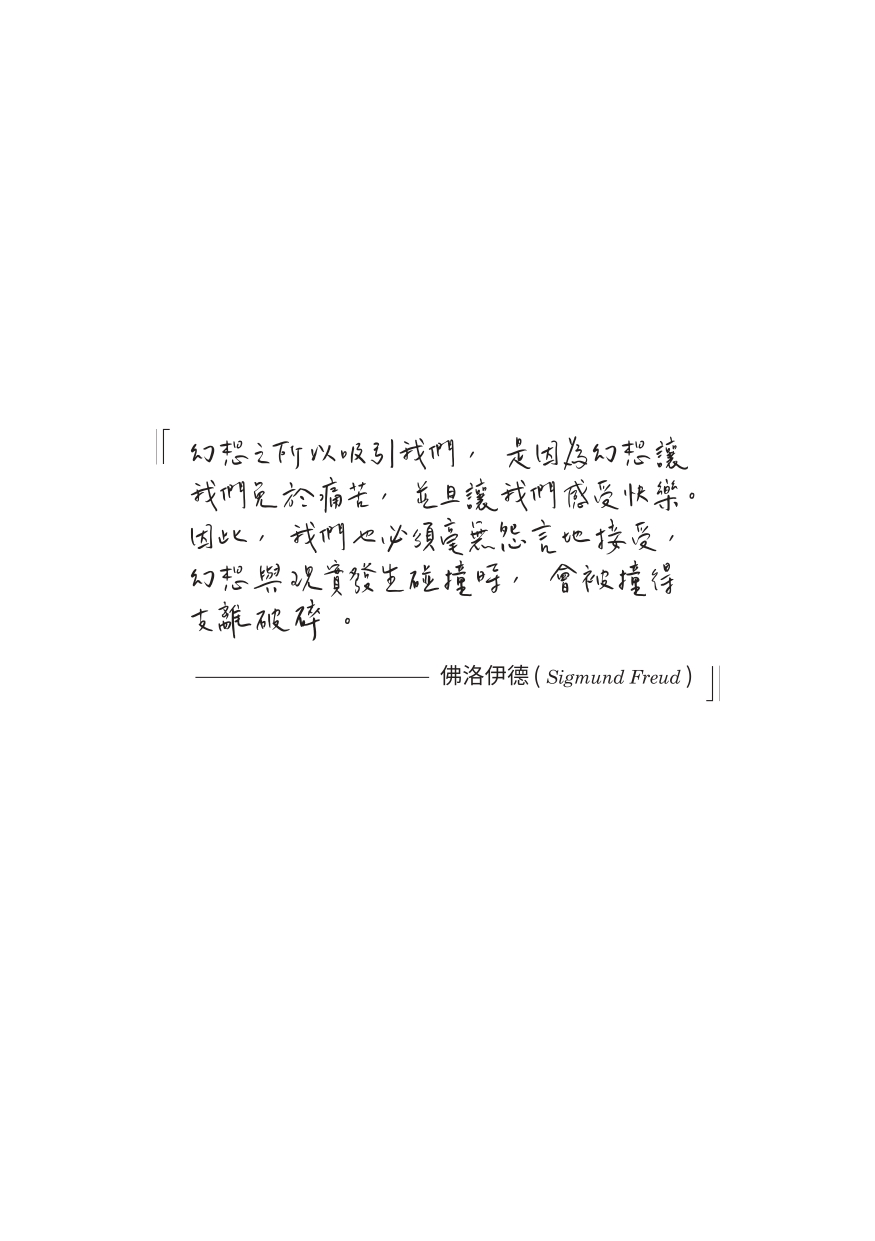 『幻想之所以吸引我們，是因為幻想讓
我們免於痛苦，並且讓我們感受快樂。
因此，我們也必須毫無怨言地接受，
幻想與現實發生碰撞時，會被撞得
支離破碎。
佛洛伊德(Sigmund Freud)』